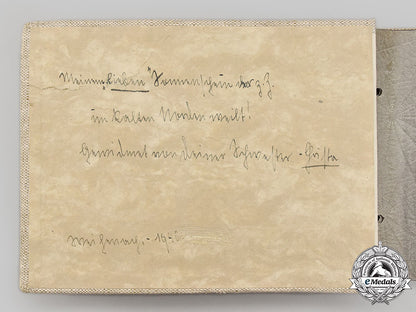 Meinem lieben "Sonnenschein der z. Z.
im kalten Norden weilt!
Gewidmet von Deiner Schwester -
Weihnach. - 19
eMedals